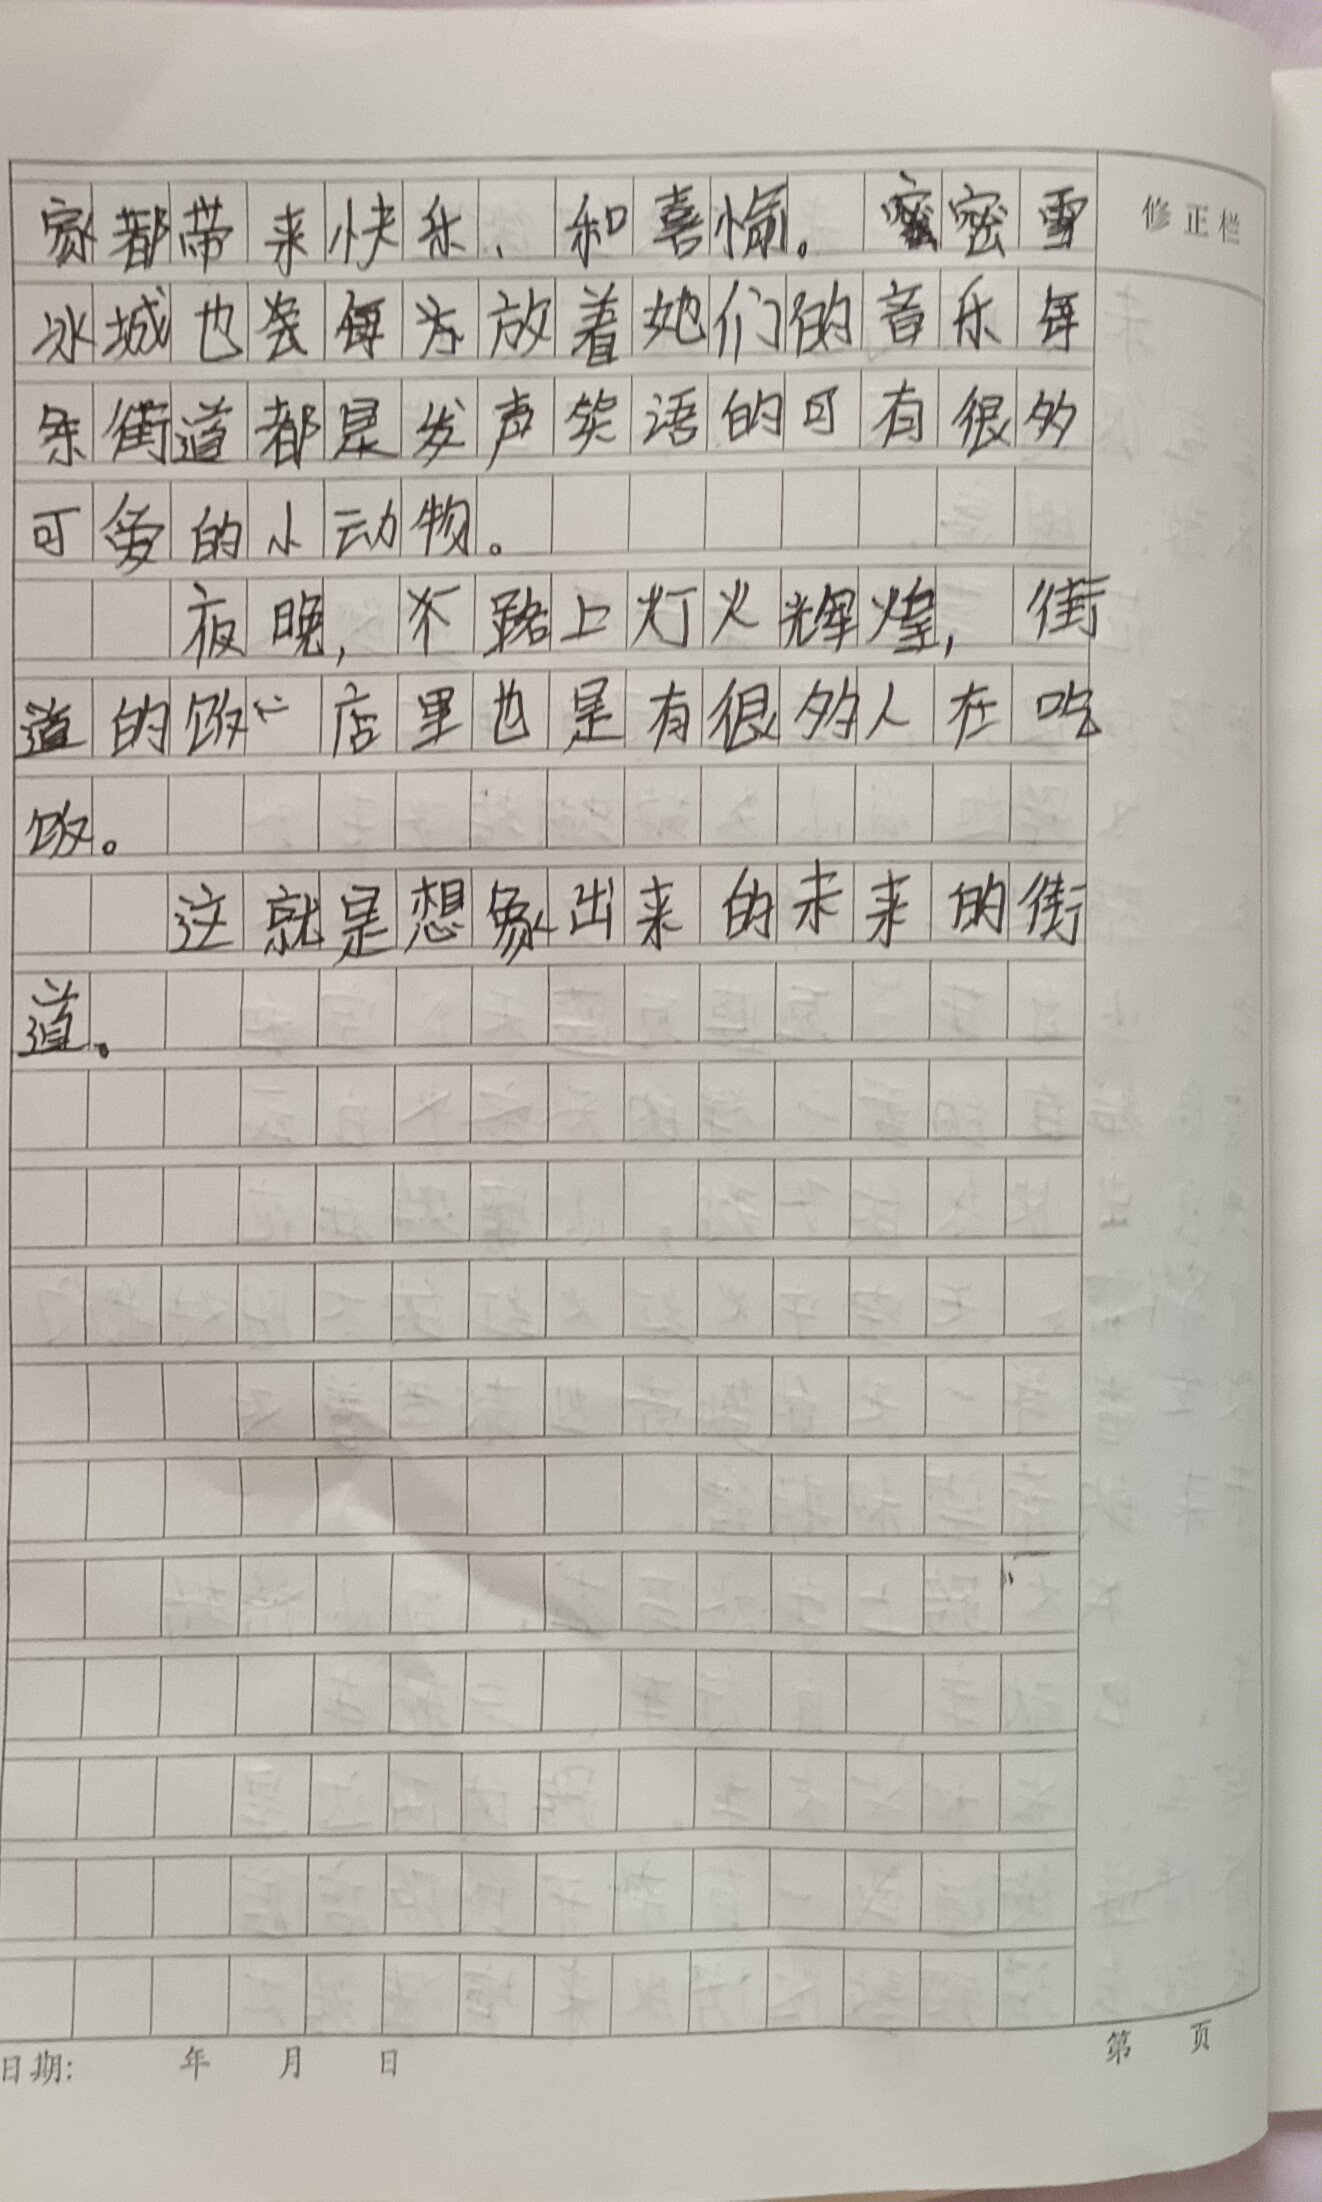 修正栏
家都带来快乐、和喜愉。蜜密雪
冰城也会每为放着她们的音乐每
条街道都是发声笑语的可有很多
可爱的小动物。
夜晚，不路上灯火辉煌，街
道的饭店里也是有很多人在吃
饭。
这就是想象出来的未来的街
道。
日期： 年 月 日
第 页